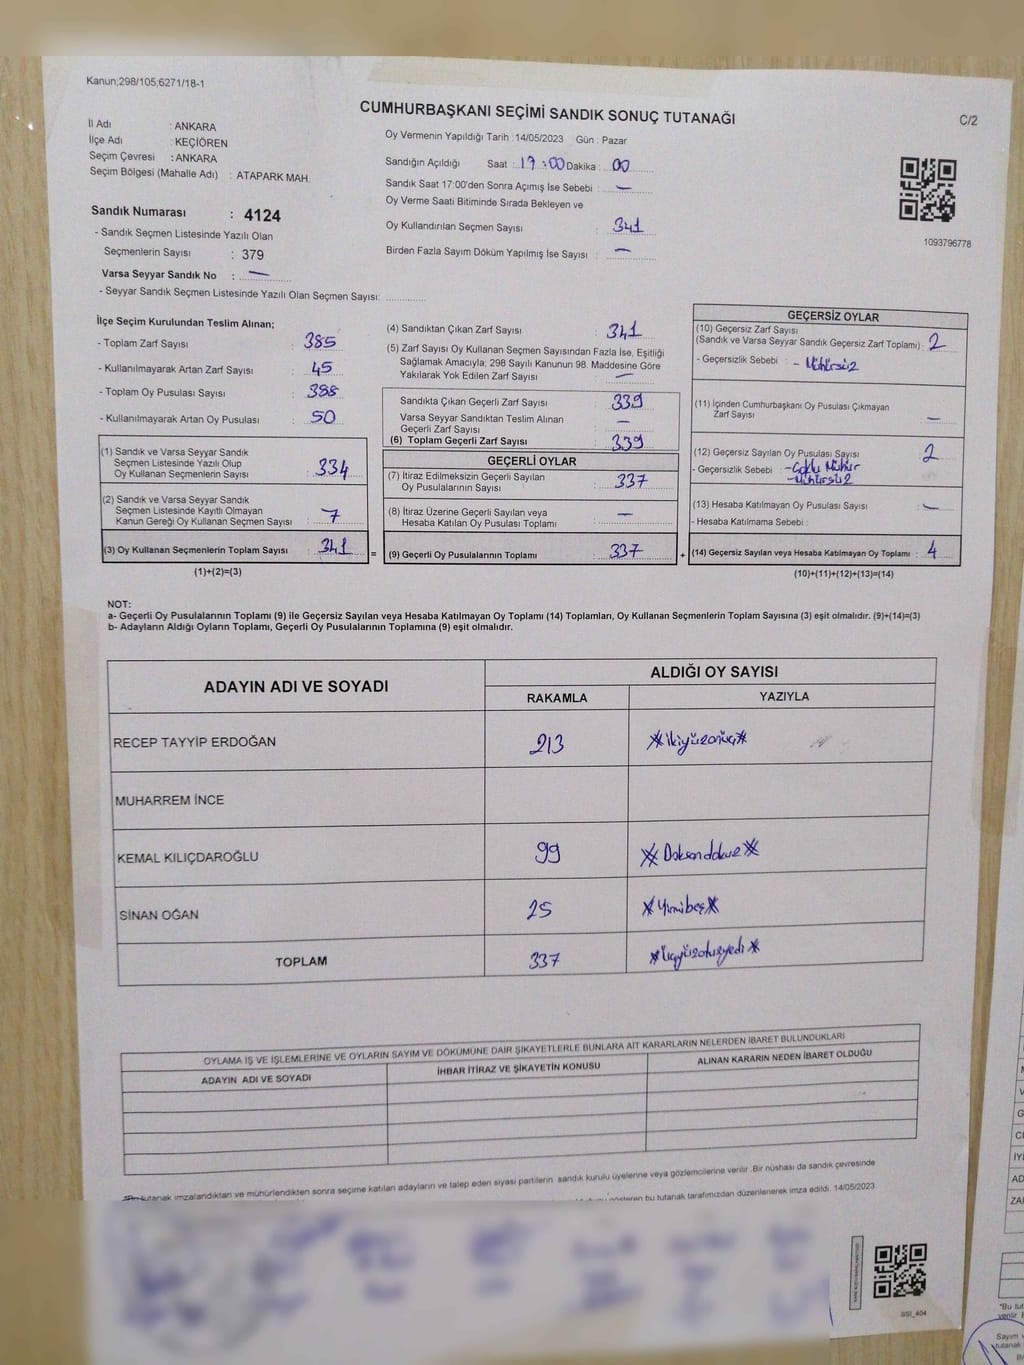 Kanun;298/105;6271/18-1
CUMHURBAŞKANI SEÇİMİ SANDIK SONUÇ TUTANAĞI
C/2
İl Adı : ANKARA
İlçe Adı : KEÇİÖREN
Seçim Çevresi : ANKARA
Seçim Bölgesi (Mahalle Adı) : ATAPARK MAH.
Sandık Numarası : 4124
- Sandık Seçmen Listesinde Yazılı Olan
Seçmenlerin Sayısı : 379
Varsa Seyyar Sandık No : —
- Seyyar Sandık Seçmen Listesinde Yazılı Olan Seçmen Sayısı:
Oy Vermenin Yapıldığı Tarih : 14/05/2023 Gün : Pazar
Sandığın Açıldığı Saat : 17:00 Dakika : 00
Sandık Saat 17:00'den Sonra Açımış İse Sebebi : —
Oy Verme Saati Bitiminde Sırada Bekleyen ve
Oy Kullandırılan Seçmen Sayısı : 341
Birden Fazla Sayım Döküm Yapılmış İse Sayısı : —
1093796778
İlçe Seçim Kurulundan Teslim Alınan;
- Toplam Zarf Sayısı : 385
- Kullanılmayarak Artan Zarf Sayısı : 45
- Toplam Oy Pusulası Sayısı : 388
- Kullanılmayarak Artan Oy Pusulası : 50
(1) Sandık ve Varsa Seyyar Sandık
Seçmen Listesinde Yazılı Olup
Oy Kullanan Seçmenlerin Sayısı : 334
(2) Sandık ve Varsa Seyyar Sandık
Seçmen Listesinde Kayıtlı Olmayan
Kanun Gereği Oy Kullanan Seçmen Sayısı : 7
(3) Oy Kullanan Seçmenlerin Toplam Sayısı : 341
(1)+(2)=(3)
=
(4) Sandıktan Çıkan Zarf Sayısı : 341
(5) Zarf Sayısı Oy Kullanan Seçmen Sayısından Fazla İse, Eşitliği
Sağlamak Amacıyla; 298 Sayılı Kanunun 98. Maddesine Göre
Yakılarak Yok Edilen Zarf Sayısı : —
Sandıkta Çıkan Geçerli Zarf Sayısı : 339
Varsa Seyyar Sandıktan Teslim Alınan
Geçerli Zarf Sayısı : —
(6) Toplam Geçerli Zarf Sayısı : 339
GEÇERLİ OYLAR
(7) İtiraz Edilmeksizin Geçerli Sayılan
Oy Pusulalarının Sayısı : 337
(8) İtiraz Üzerine Geçerli Sayılan veya
Hesaba Katılan Oy Pusulası Toplamı : —
(9) Geçerli Oy Pusulalarının Toplamı : 337
+
GEÇERSİZ OYLAR
(10) Geçersiz Zarf Sayısı
(Sandık ve Varsa Seyyar Sandık Geçersiz Zarf Toplamı) : 2
- Geçersizlik Sebebi : - Mühürsüz
(11) İçinden Cumhurbaşkanı Oy Pusulası Çıkmayan
Zarf Sayısı : —
(12) Geçersiz Sayılan Oy Pusulası Sayısı : 2
- Geçersizlik Sebebi : - Çoklu Mühür
- Mühürsüz
(13) Hesaba Katılmayan Oy Pusulası Sayısı : —
- Hesaba Katılmama Sebebi :
(14) Geçersiz Sayılan veya Hesaba Katılmayan Oy Toplamı : 4
(10)+(11)+(12)+(13)=(14)
NOT:
a- Geçerli Oy Pusulalarının Toplamı (9) ile Geçersiz Sayılan veya Hesaba Katılmayan Oy Toplamı (14) Toplamları, Oy Kullanan Seçmenlerin Toplam Sayısına (3) eşit olmalıdır. (9)+(14)=(3)
b- Adayların Aldığı Oyların Toplamı, Geçerli Oy Pusulalarının Toplamına (9) eşit olmalıdır.
ADAYIN ADI VE SOYADI
ALDIĞI OY SAYISI
RAKAMLA YAZIYLA
RECEP TAYYİP ERDOĞAN 213 *ikiyüzonüç*
MUHARREM İNCE
KEMAL KILIÇDAROĞLU 99 *Doksandokuz*
SİNAN OĞAN 25 *Yirmibeş*
TOPLAM 337 *üçyüzotuzyedi*
OYLAMA İŞ VE İŞLEMLERİNE VE OYLARIN SAYIM VE DÖKÜMÜNE DAİR ŞİKAYETLERLE BUNLARA AİT KARARLARIN NELERDEN İBARET BULUNDUKLARI
ADAYIN ADI VE SOYADI İHBAR İTİRAZ VE ŞİKAYETİN KONUSU ALINAN KARARIN NEDEN İBARET OLDUĞU
tutanak imzalandıktan ve mühürlendikten sonra seçime katılan adayların ve talep eden siyasi partilerin sandık kurulu üyelerine veya gözlemcilerine verilir. Bir nüshası da sandık çevresinde
gösteren bu tutanak tarafımızdan düzenlenerek imza edildi. 14/05/2023
SSI_404